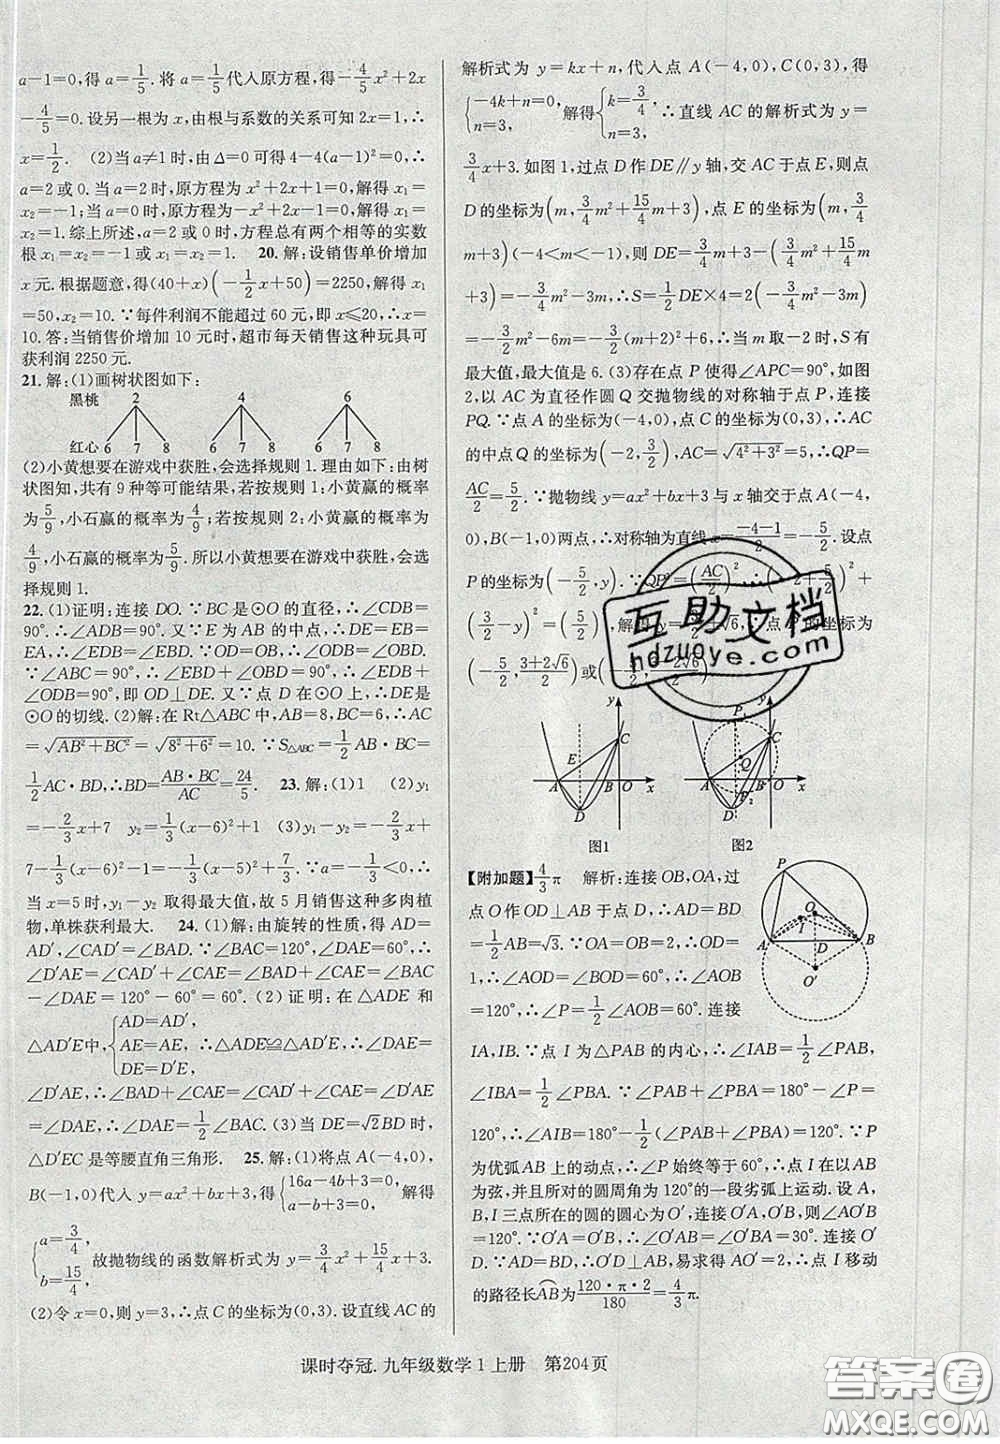 a－1=0，得 a=1/5. 将 a=1/5 代入原方程，得－4/5x²+2x
－4/5=0. 设另一根为 x，由根与系数的关系可知 2x=1，∴
x=1/2. (2)当 a≠1 时，由 Δ=0 可得 4－4(a－1)²=0，∴
a=2 或 0. 当 a=2 时，原方程为 x²+2x+1=0，解得 x₁=
x₂=－1；当 a=0 时，原方程为－x²+2x－1=0，解得 x₁=
x₂=1. 综上所述，a=2 或 0 时，方程总有两个相等的实数
根 x₁=x₂=－1 或 x₁=x₂=1. 20. 解：设销售单价增加
x 元. 根据题意，得(40+x)(－1/2x+50)=2250，解得 x₁
=50，x₂=10. ∵每件利润不能超过 60 元，即 x≤20，∴x=
10. 答：当销售价增加 10 元时，超市每天销售这种玩具可
获利润 2250 元.
21. 解：(1)画树状图如下：
黑桃 2 4 6
红心 6 7 8 6 7 8 6 7 8
(2)小黄想要在游戏中获胜，会选择规则 1. 理由如下：由树
状图知，共有 9 种等可能结果，若按规则 1：小黄赢的概率
为5/9，小石赢的概率为4/9；若按规则 2：小黄赢的概率为
4/9，小石赢的概率为5/9. 所以小黄想要在游戏中获胜，会选
择规则 1.
22. (1)证明：连接 DO. ∵BC 是⊙O 的直径，∴∠CDB=
90°. ∴∠ADB=90°. 又∵E 为 AB 的中点，∴DE=EB=
EA，∴∠EDB=∠EBD. ∵OD=OB，∴∠ODB=
∠OBD. ∵∠ABC=90°，∴∠EBD+∠OBD=90°. ∴∠EDB
+∠ODB=90°，即 OD⊥DE. 又∵点 D 在⊙O 上，∴DE 是
⊙O 的切线. (2)解：在 Rt△ABC 中，AB=8，BC=6，∴AC=
√(AB²+BC²)=√(8²+6²)=10. ∵S△ABC=1/2AB·BC=
1/2AC·BD，∴BD=(AB·BC)/AC=24/5. 23. 解：(1)1 (2)y₁
=－2/3x+7 y₂=1/3(x－6)²+1 (3)y₁－y₂=－2/3x+
7－1/3(x－6)²－1=－1/3(x－5)²+7/3. ∵a=－1/3<0，∴
当 x=5 时，y₁－y₂ 取得最大值，故 5 月销售这种多肉植
物，单株获利最大. 24. (1)解：由旋转的性质，得 AD=
AD′，∠CAD′=∠BAD. ∵∠BAC=120°，∠DAE=60°，∴
∠D′AE=∠CAD′+∠CAE=∠BAD+∠CAE=∠BAC
－∠DAE=120°－60°=60°. (2)证明：在△ADE 和
△AD′E中，{AD=AD′，AE=AE，DE=D′E，∴△ADE≌△AD′E，∴∠DAE=
∠D′AE，∴∠BAD+∠CAE=∠CAD′+∠CAE=∠D′AE=
∠DAE，∴∠DAE=1/2∠BAC. (3)当 DE=√2BD 时，
△D′EC 是等腰直角三角形. 25. 解：(1)将点 A(－4,0)，
B(－1,0)代入 y=ax²+bx+3，得{16a－4b+3=0，a－b+3=0，解得
{a=3/4，b=15/4，故抛物线的函数解析式为 y=3/4x²+15/4x+3.
(2)令 x=0，则 y=3，∴点 C 的坐标为(0,3). 设直线 AC 的
解析式为 y=kx+n，代入点 A(－4,0)，C(0,3)，得
{－4k+n=0，n=3，解得{k=3/4，n=3，∴直线 AC 的解析式为 y=
3/4x+3. 如图 1，过点 D 作 DE∥y 轴，交 AC 于点 E，则点
D 的坐标为(m，3/4m²+15/4m+3)，点 E 的坐标为(m，
3/4m+3)(－4<m<－1)，则 DE=3/4m+3－(3/4m²+15/4m
+3)=－3/4m²－3m. ∴S=1/2DE×4=2(－3/4m²－3m)=
－3/2m²－6m=－3/2(m+2)²+6，∴当 m 取－2 时，S 有
最大值，最大值是 6. (3)存在点 P 使得∠APC=90°，如图
2，以 AC 为直径作圆 Q 交抛物线的对称轴于点 P，连接
PQ. ∵点 A 的坐标为(－4,0)，点 C 的坐标为(0,3)，∴AC
的中点 Q 的坐标为(－2，3/2)，AC=√(4²+3²)=5，∴QP=
AC/2=5/2. ∵抛物线 y=ax²+bx+3 与 x 轴交于点 A(－4，
0)，B(－1,0)两点，∴对称轴为直线 x=(－4－1)/2=－5/2. 设点
P 的坐标为(－5/2，y). ∵QP²=(AC/2)²，∴(－2+5/2)²+
(3/2－y)²=(5/2)²，解得 y=(3±2√6)/2，∴点 P 的坐标为
(－5/2，(3+2√6)/2)或(－5/2，(3－2√6)/2)
y E C A B O x D 图1
y P₁ C Q A B O x D P₂ 图2
【附加题】4/3π 解析：连接 OB，OA，过
点 O 作 OD⊥AB 于点 D，∴AD=BD
=1/2AB=√3. ∵OA=OB=2，∴OD=
1，∴∠AOD=∠BOD=60°，∴∠AOB=
120°，∴∠P=1/2∠AOB=60°. 连接
P O I A D B O′
IA，IB. ∵点 I 为△PAB 的内心，∴∠IAB=1/2∠PAB，
∠IBA=1/2∠PBA. ∵∠PAB+∠PBA=180°－∠P=
120°，∴∠AIB=180°－1/2(∠PAB+∠PBA)=120°. ∵P
为优弧 AB 上的动点，∴∠P 始终等于 60°，∴点 I 在以 AB
为弦，并且所对的圆周角为 120°的一段劣弧上运动. 设 A，
B，I 三点所在的圆的圆心为 O′，连接 O′A，O′B，则∠AO′B
=120°. ∵O′A=O′B，∴∠O′AB=∠O′BA=30°. 连接 O′
D. ∵AD=BD，∴O′D⊥AB，易求得 AO′=2. 点 I 移动
的路径长AB⌒为(120·π·2)/180=4/3π.
课时夺冠. 九年级数学 1 上册 第204页
互助文档
hdzuoye.com
答案圈
MXQE.COM